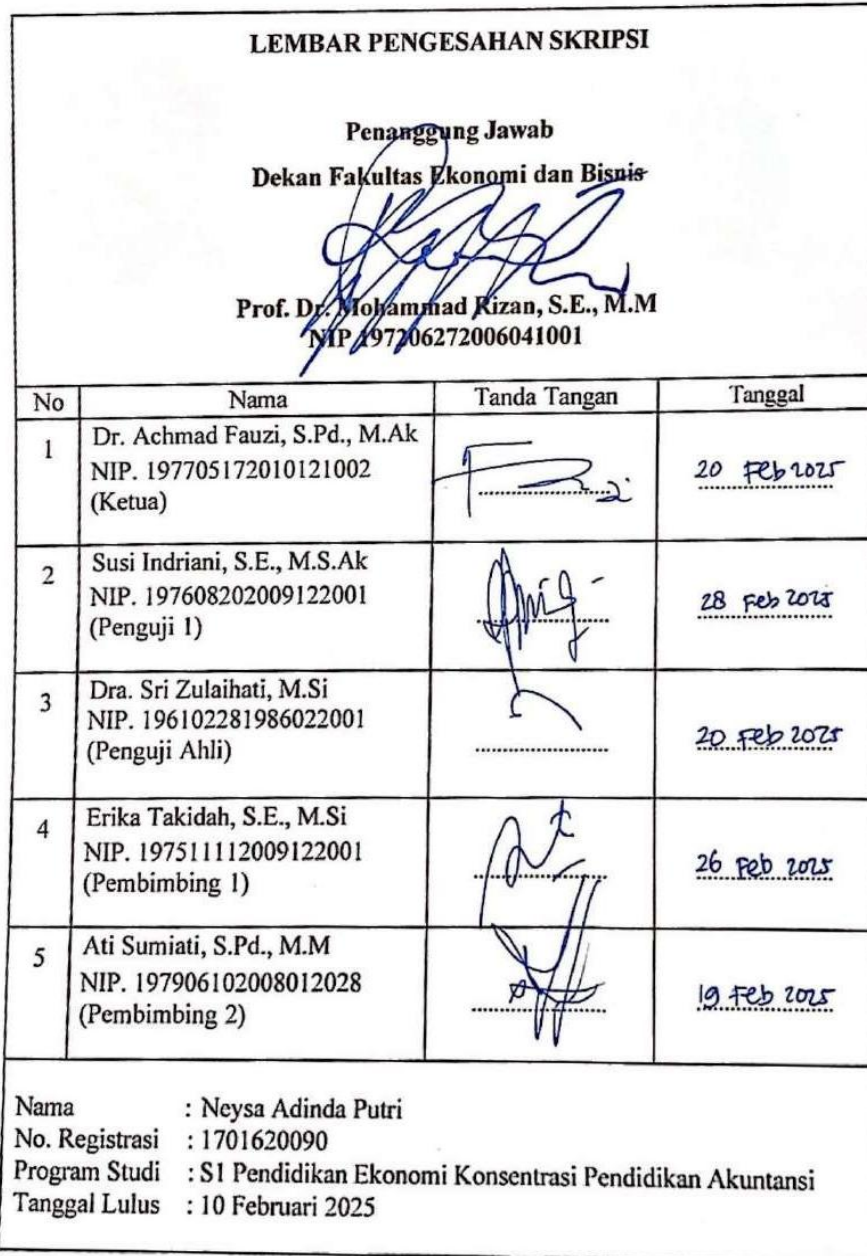 LEMBAR PENGESAHAN SKRIPSI
Penanggung Jawab
Dekan Fakultas Ekonomi dan Bisnis
Prof. Dr. Mohammad Rizan, S.E., M.M
NIP 197206272006041001
No Nama Tanda Tangan Tanggal
1 Dr. Achmad Fauzi, S.Pd., M.Ak
NIP. 197705172010121002
(Ketua)
20 Feb 2025
2 Susi Indriani, S.E., M.S.Ak
NIP. 197608202009122001
(Penguji 1)
28 Feb 2025
3 Dra. Sri Zulaihati, M.Si
NIP. 196102281986022001
(Penguji Ahli)
20 Feb 2025
4 Erika Takidah, S.E., M.Si
NIP. 197511112009122001
(Pembimbing 1)
26 Feb 2025
5 Ati Sumiati, S.Pd., M.M
NIP. 197906102008012028
(Pembimbing 2)
19 Feb 2025
Nama : Neysa Adinda Putri
No. Registrasi : 1701620090
Program Studi : S1 Pendidikan Ekonomi Konsentrasi Pendidikan Akuntansi
Tanggal Lulus : 10 Februari 2025